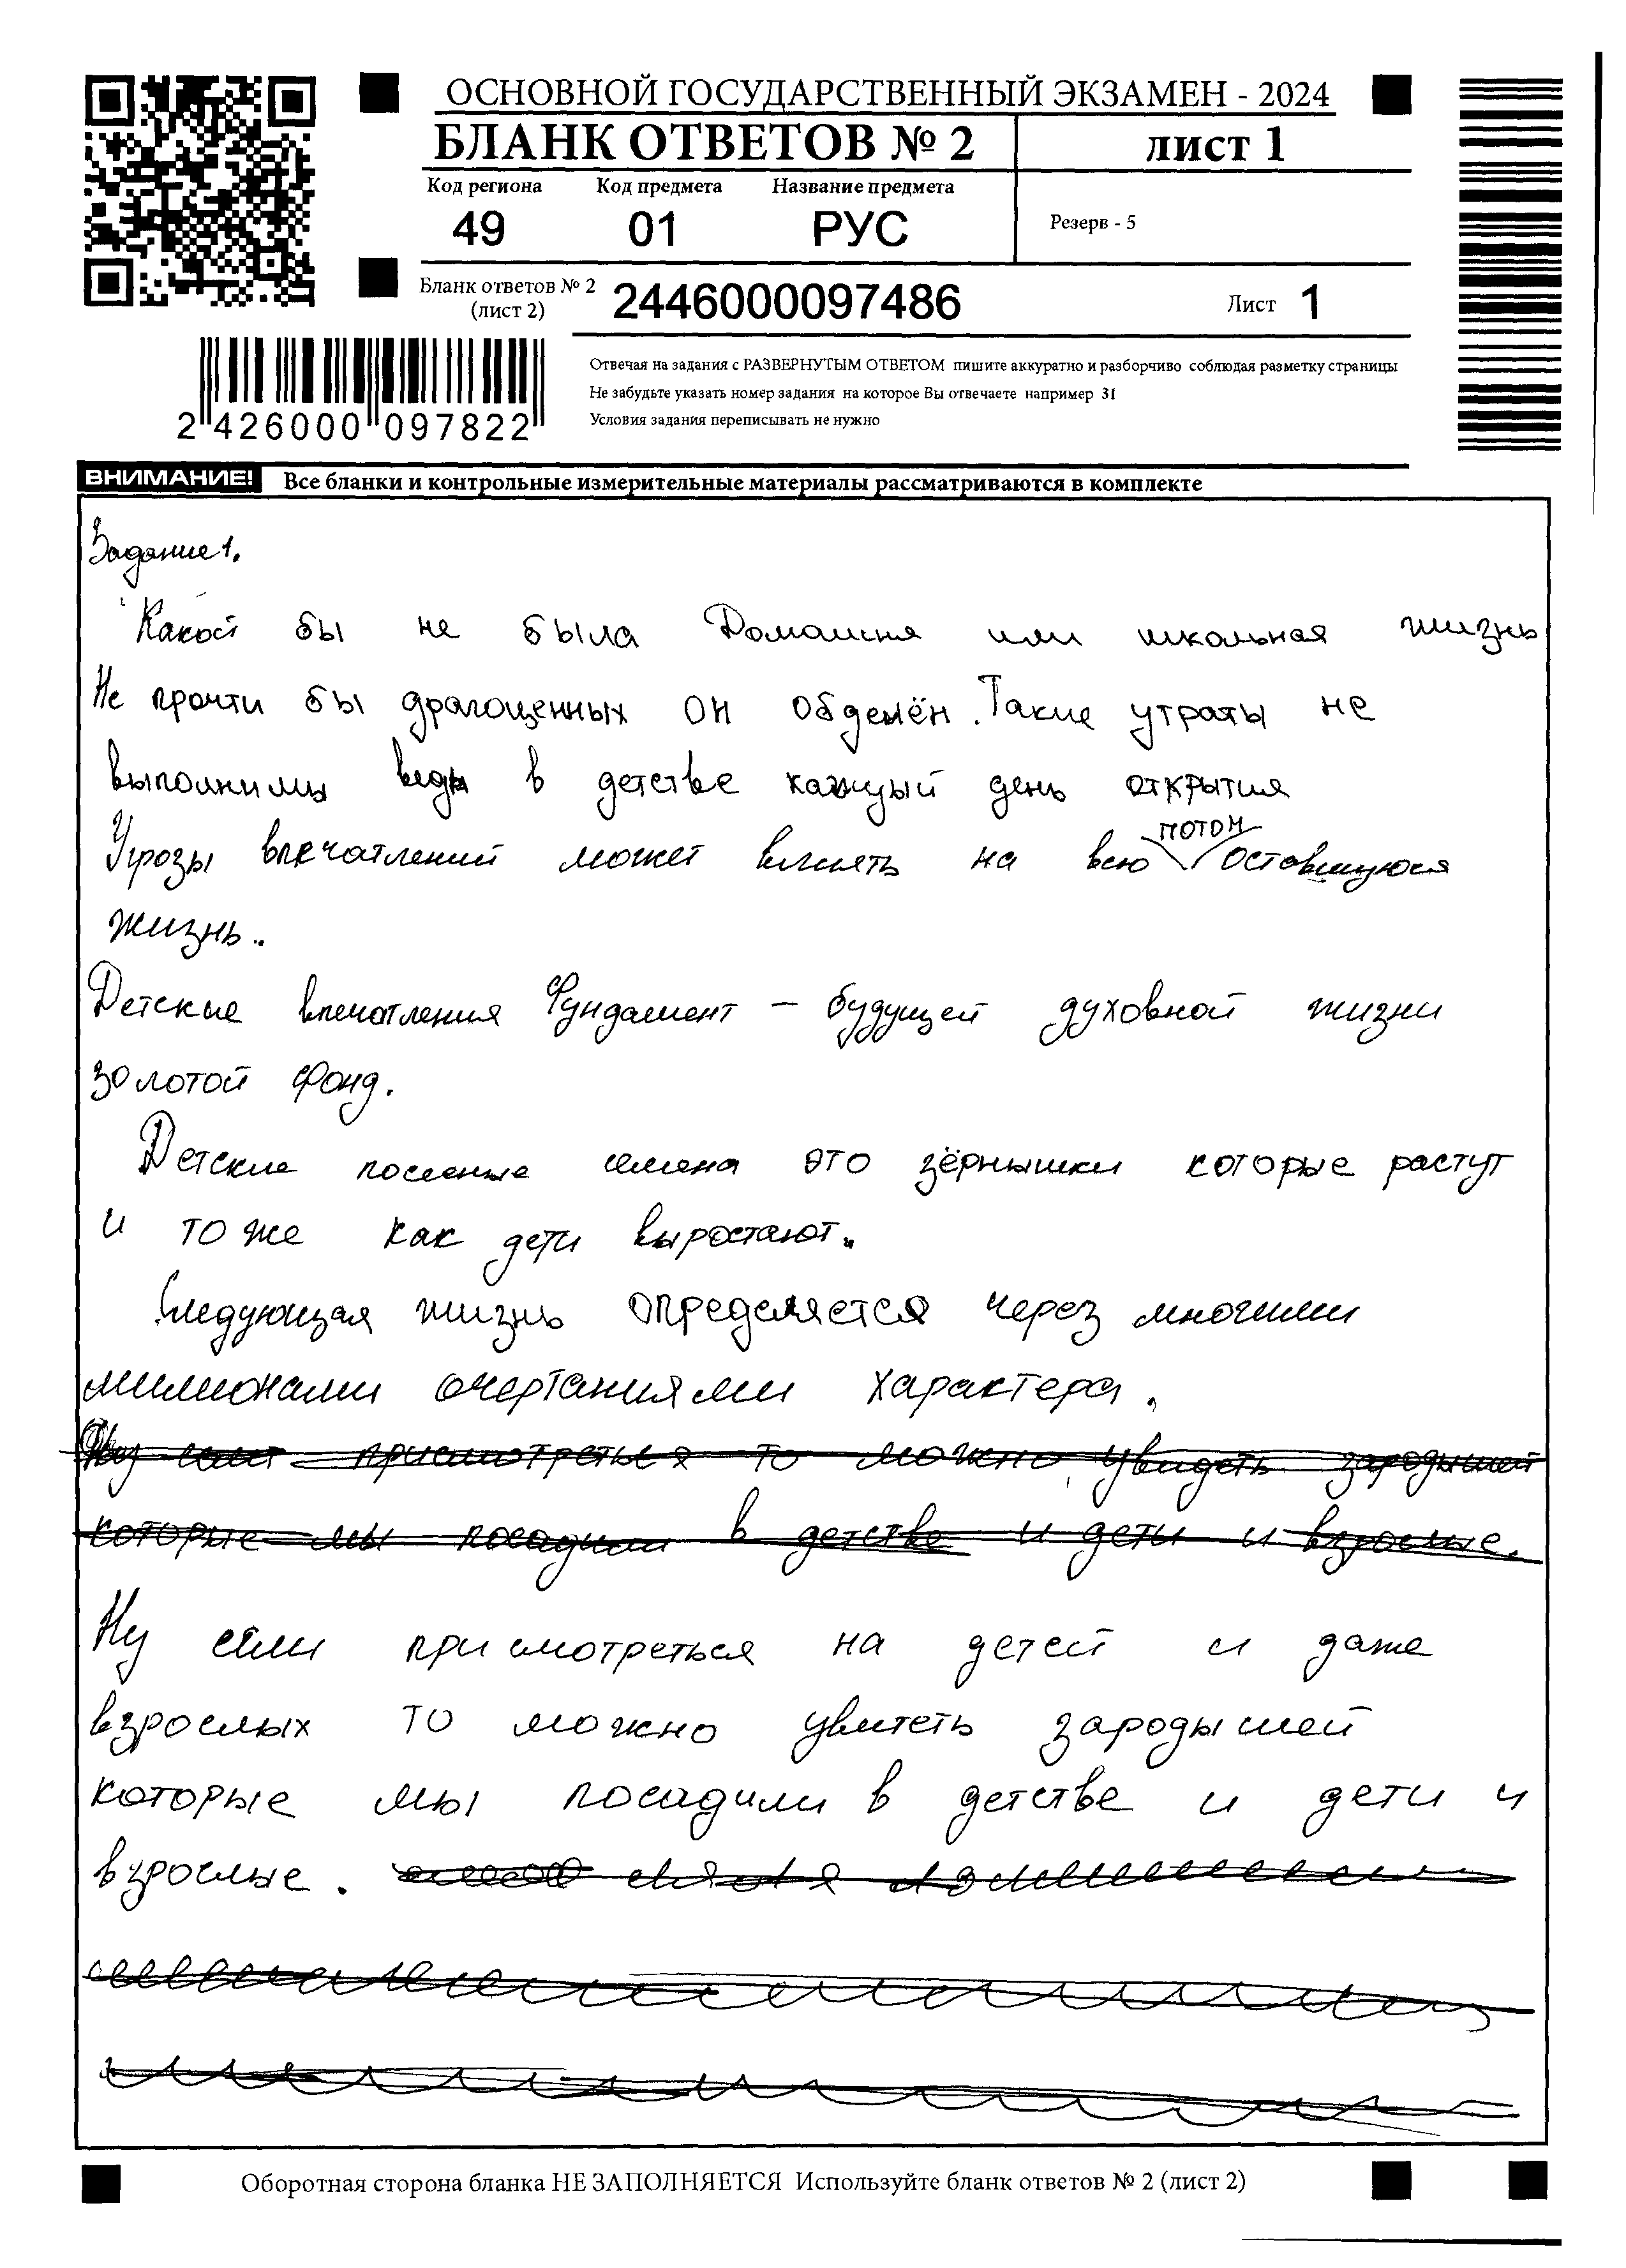 ОСНОВНОЙ ГОСУДАРСТВЕННЫЙ ЭКЗАМЕН - 2024
БЛАНК ОТВЕТОВ № 2
лист 1
Код региона Код предмета Название предмета
49 01 РУС
Резерв - 5
Бланк ответов № 2
(лист 2)
2446000097486
Лист 1
2 426000 097822
Отвечая на задания с РАЗВЕРНУТЫМ ОТВЕТОМ пишите аккуратно и разборчиво соблюдая разметку страницы
Не забудьте указать номер задания на которое Вы отвечаете например 31
Условия задания переписывать не нужно
ВНИМАНИЕ! Все бланки и контрольные измерительные материалы рассматриваются в комплекте
Задание 1.
Какой бы не была Домашня или школьная жизнь
Не прочти бы драгоценных он обделён. Такие утраты не
выполнимы ведь в детстве каждый день открытия
Угрозы впечатлений может влиять на всю потом оставшуюся
жизнь.
Детские впечатления Фундамент - будущей духовной жизни
золотой фонд.
Детские посеные семена это зёрнышки которые растут
и тоже как дети выростают.
Следующая жизнь определяется через многими
милионами очертаниями характера.
присмотреться то можно увидеть зародышей
которые мы посадили в детстве и дети и взрослые.
Ну если присмотреться на детей и даже
взрослых то можно увитеть зародышей
которые мы посадили в детстве и дети и
взрослые.
Оборотная сторона бланка НЕ ЗАПОЛНЯЕТСЯ Используйте бланк ответов № 2 (лист 2)